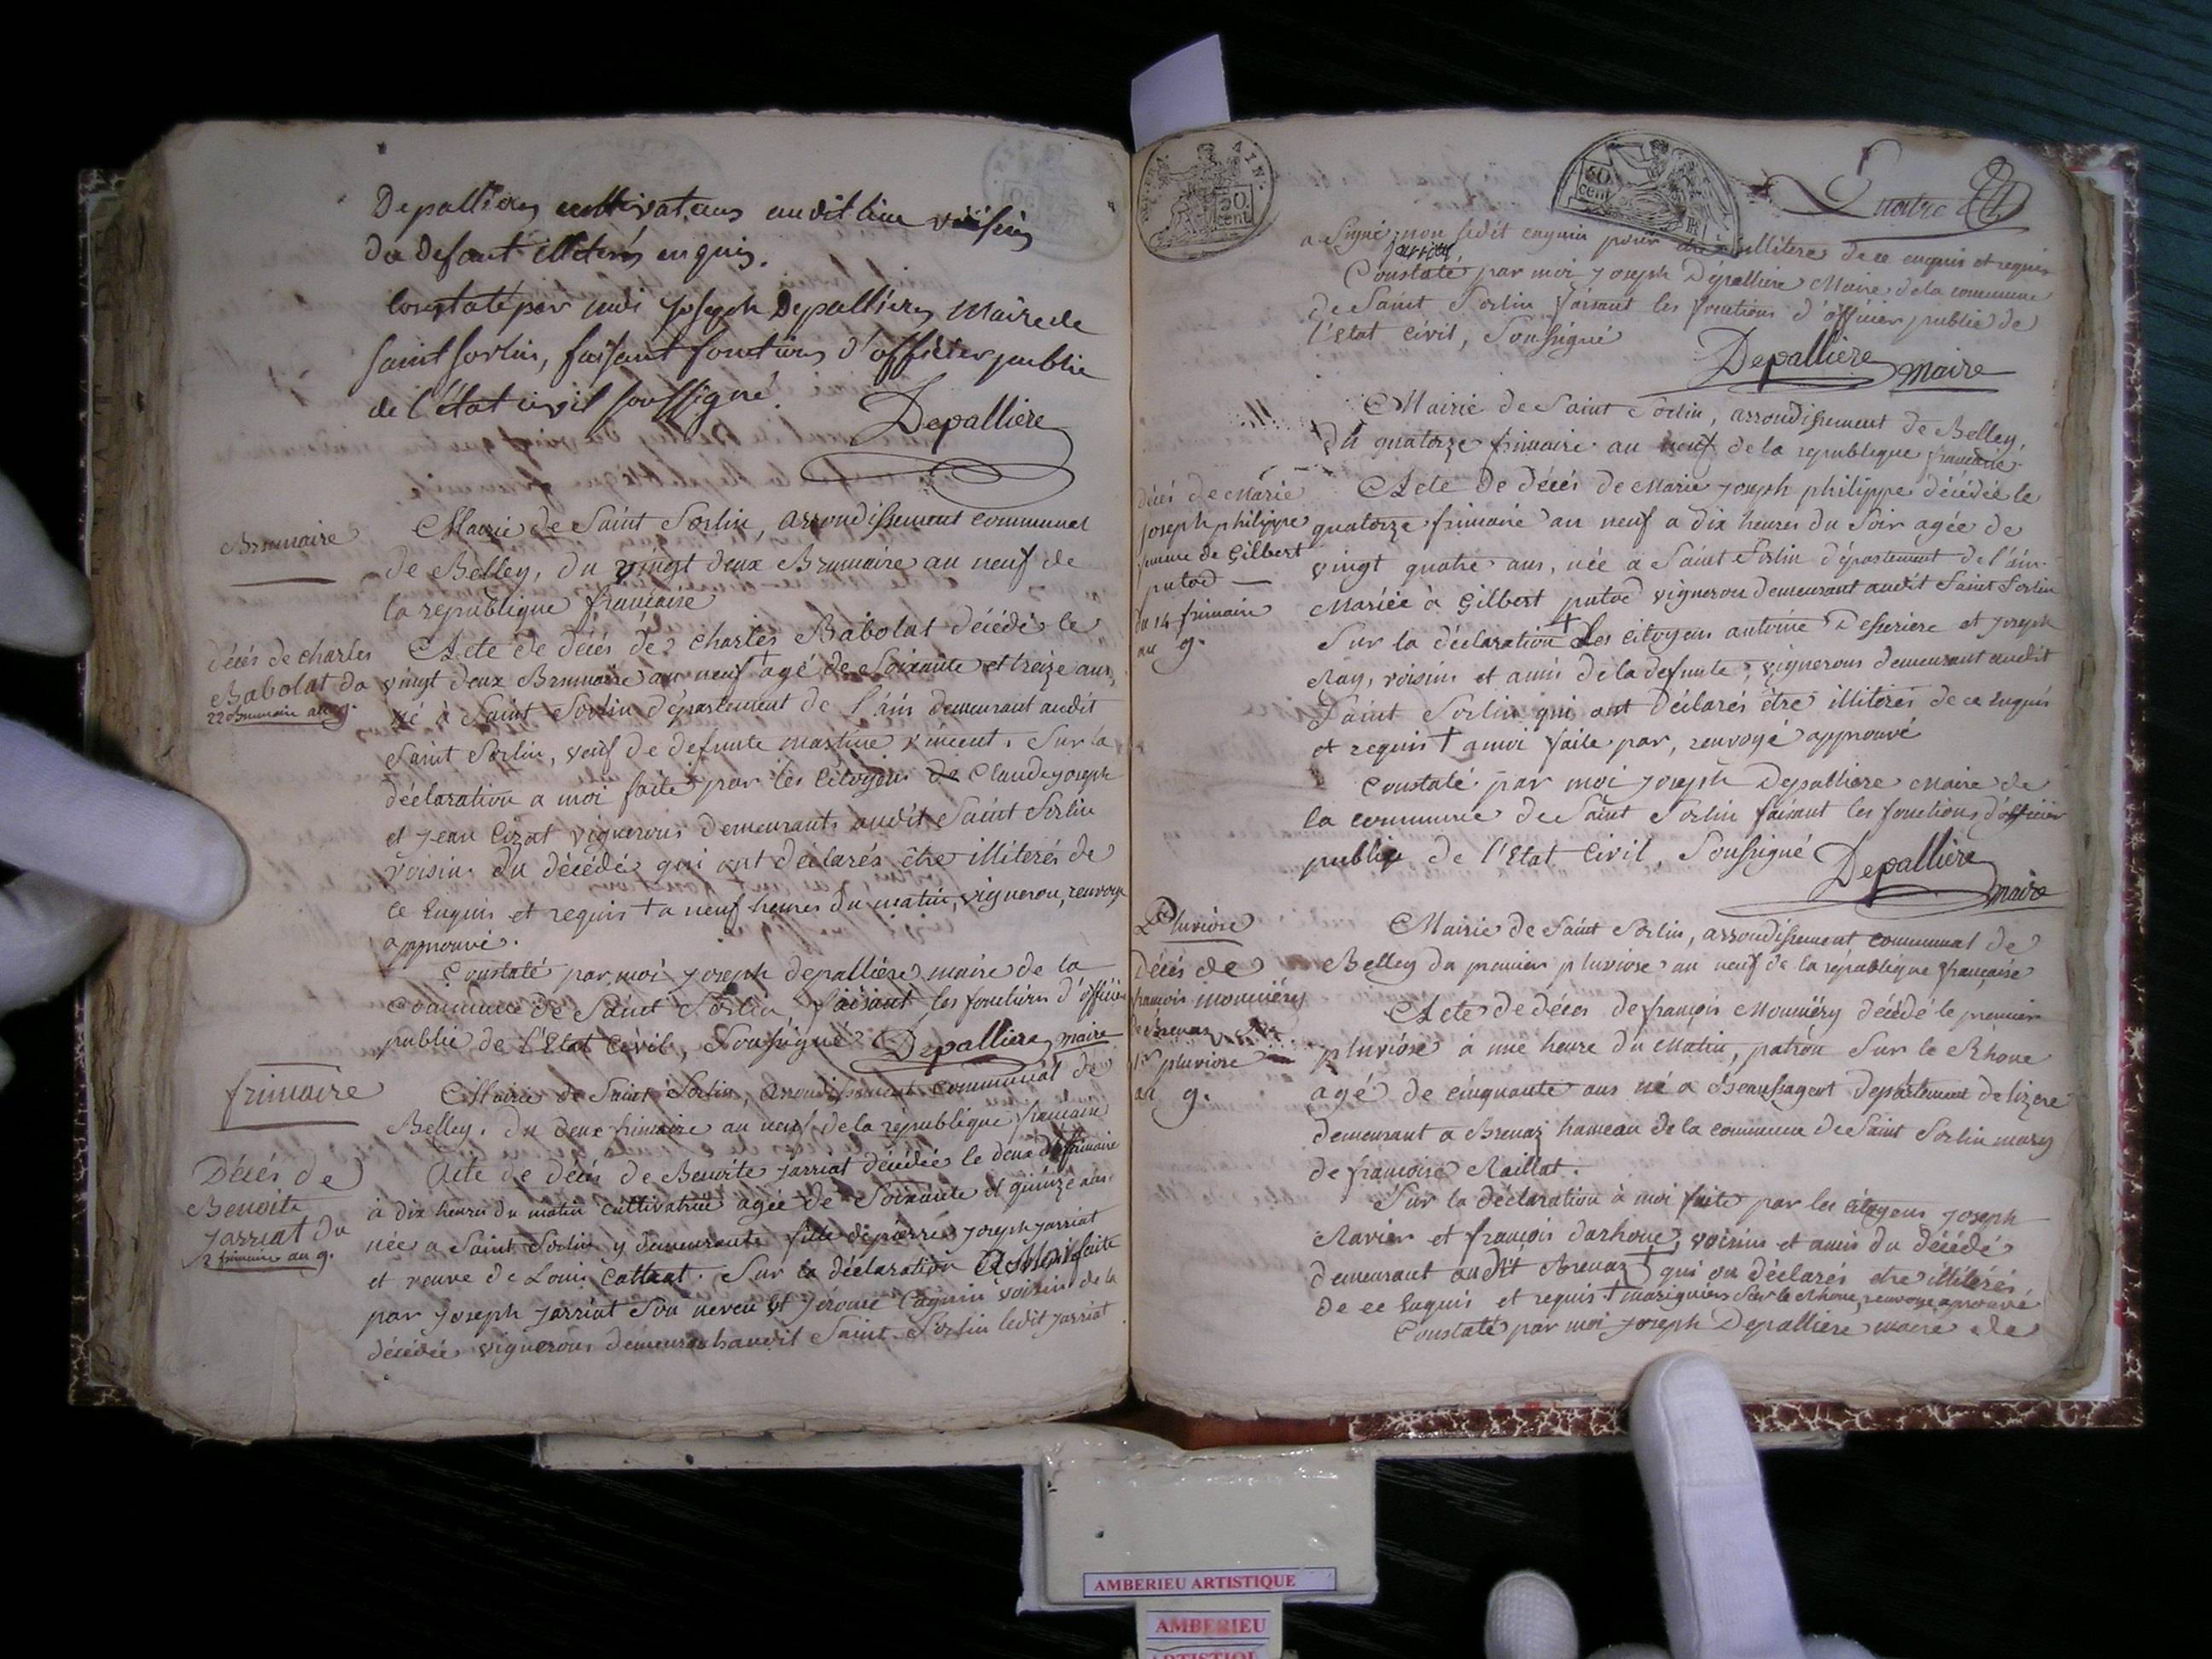 Depallieres cultivateurs audit lieu voisins
du defunt illeterés enquis.
Constaté par moi Joseph Depallieres Maire de
Saint Sorlin, faisant fonctions d'officier public
de l'état civil soussigné.
Depalliere
Brumaire
Mairie de Saint Sorlin, arrondissement communal
de Belley, du vingt deux Brumaire an neuf de
la republique française
décés de charles
Babolat du
22 Brumaire an 9.
Acte de décés de charles Babolat décédé le
vingt deux Brumaire an neuf + agé de Soixante et treize ans,
né à Saint Sorlin département de l'ain demeurant audit
Saint Sorlin, veuf de defunte martine vincent. Sur la
déclaration a moi faite par les Citoyens de Claude joseph
et jean Cizat vignerons demeurants audit Saint Sorlin
voisins du décédé qui ont déclarés être illiterés de
ce Enquis et requis + a neuf heures du matin, vigneron, renvoye
approuvé.
Constaté par moi joseph depalliere maire de la
commune de Saint Sorlin faisant les fonctions d'officier
public de l'Etat Civil, Soussigné
Depalliere maire
frimaire
Mairie de Saint Sorlin, arrondissement communal de
Belley. du deux frimaire an neuf de la république francaise
Décés de
Benoite
Jarriat du
2 frimaire an 9.
Acte de décés de Benoite Jarriat décédée le deux frimaire
à dix heures du matin cultivatrice agée de Soixante et quinze ans
née a Saint Sorlin y demeurante fille de pierre joseph jarriat
et veuve de Louis Cattrat. Sur la déclaration A Moi faite
par joseph jarriat Son neveu et jérome Cagnin voisin de la
décédée vignerons demeurants audit Saint Sorlin ledit jarriat
AIN.
50 cent
50 cent
Quatre
a Signé non ledit cagnin pour être illitere de ce enquis et requis
jarriat
Constaté par moi Joseph Depalliere Maire de la commune
de Saint Sorlin faisant les fonctions d'officier public de
l'Etat civil, Soussigné
Depalliere maire
Mairie de Saint Sorlin, arrondissement de Belley,
du quatorze frimaire an neuf de la republique francaise
décés de Marie
joseph philippe
femme de Gilbert
putod
du 14 frimaire
an 9.
Acte de décés de Marie joseph philippe décédée le
quatorze frimaire an neuf a dix heures du Soir agée de
vingt quatre ans, née a Saint Sorlin département de l'ain
Mariée à Gilbert putod vigneron demeurant audit Saint Sorlin
Sur la déclaration + des citoyens antoine Deseriere et joseph
Ray, voisins et amis de la defunte, vignerons demeurant audit
Saint Sorlin qui ont déclarés être illiterés de ce enquis
et requis + a moi faite par, renvoyé approuvé
Constaté par moi joseph Depalliere Maire de
la commune de Saint Sorlin faisant les fonctions d'officier
public de l'Etat Civil, Soussigné
Depalliere maire
Pluviose
Mairie de Saint Sorlin, arrondissement communal de
Belley du premier pluviose an neuf de la république française
Décés de
francois monnièry
de Brenaz
1er pluviose
an 9.
Acte de décés de françois Monnièry décédé le premier
pluviose à une heure du Matin, patron Sur le Rhone
agé de cinquante ans né a Beausagent département de lizere
demeurant a Brenaz hameau de la commune de Saint Sorlin mary
de francoise Raillat.
Sur la déclaration à moi faite par les citoyens joseph
Ravier et françois darhone, voisins et amis du décédé
demeurant audit Brenaz + qui on déclarés etre illiterés
de ce Enquis et requis + mariniers Sur le Rhone, renvoye aprouvé
Constaté par moi joseph Depalliere maire de
AMBERIEU ARTISTIQUE
AMBERIEU
ARTISTIQUE